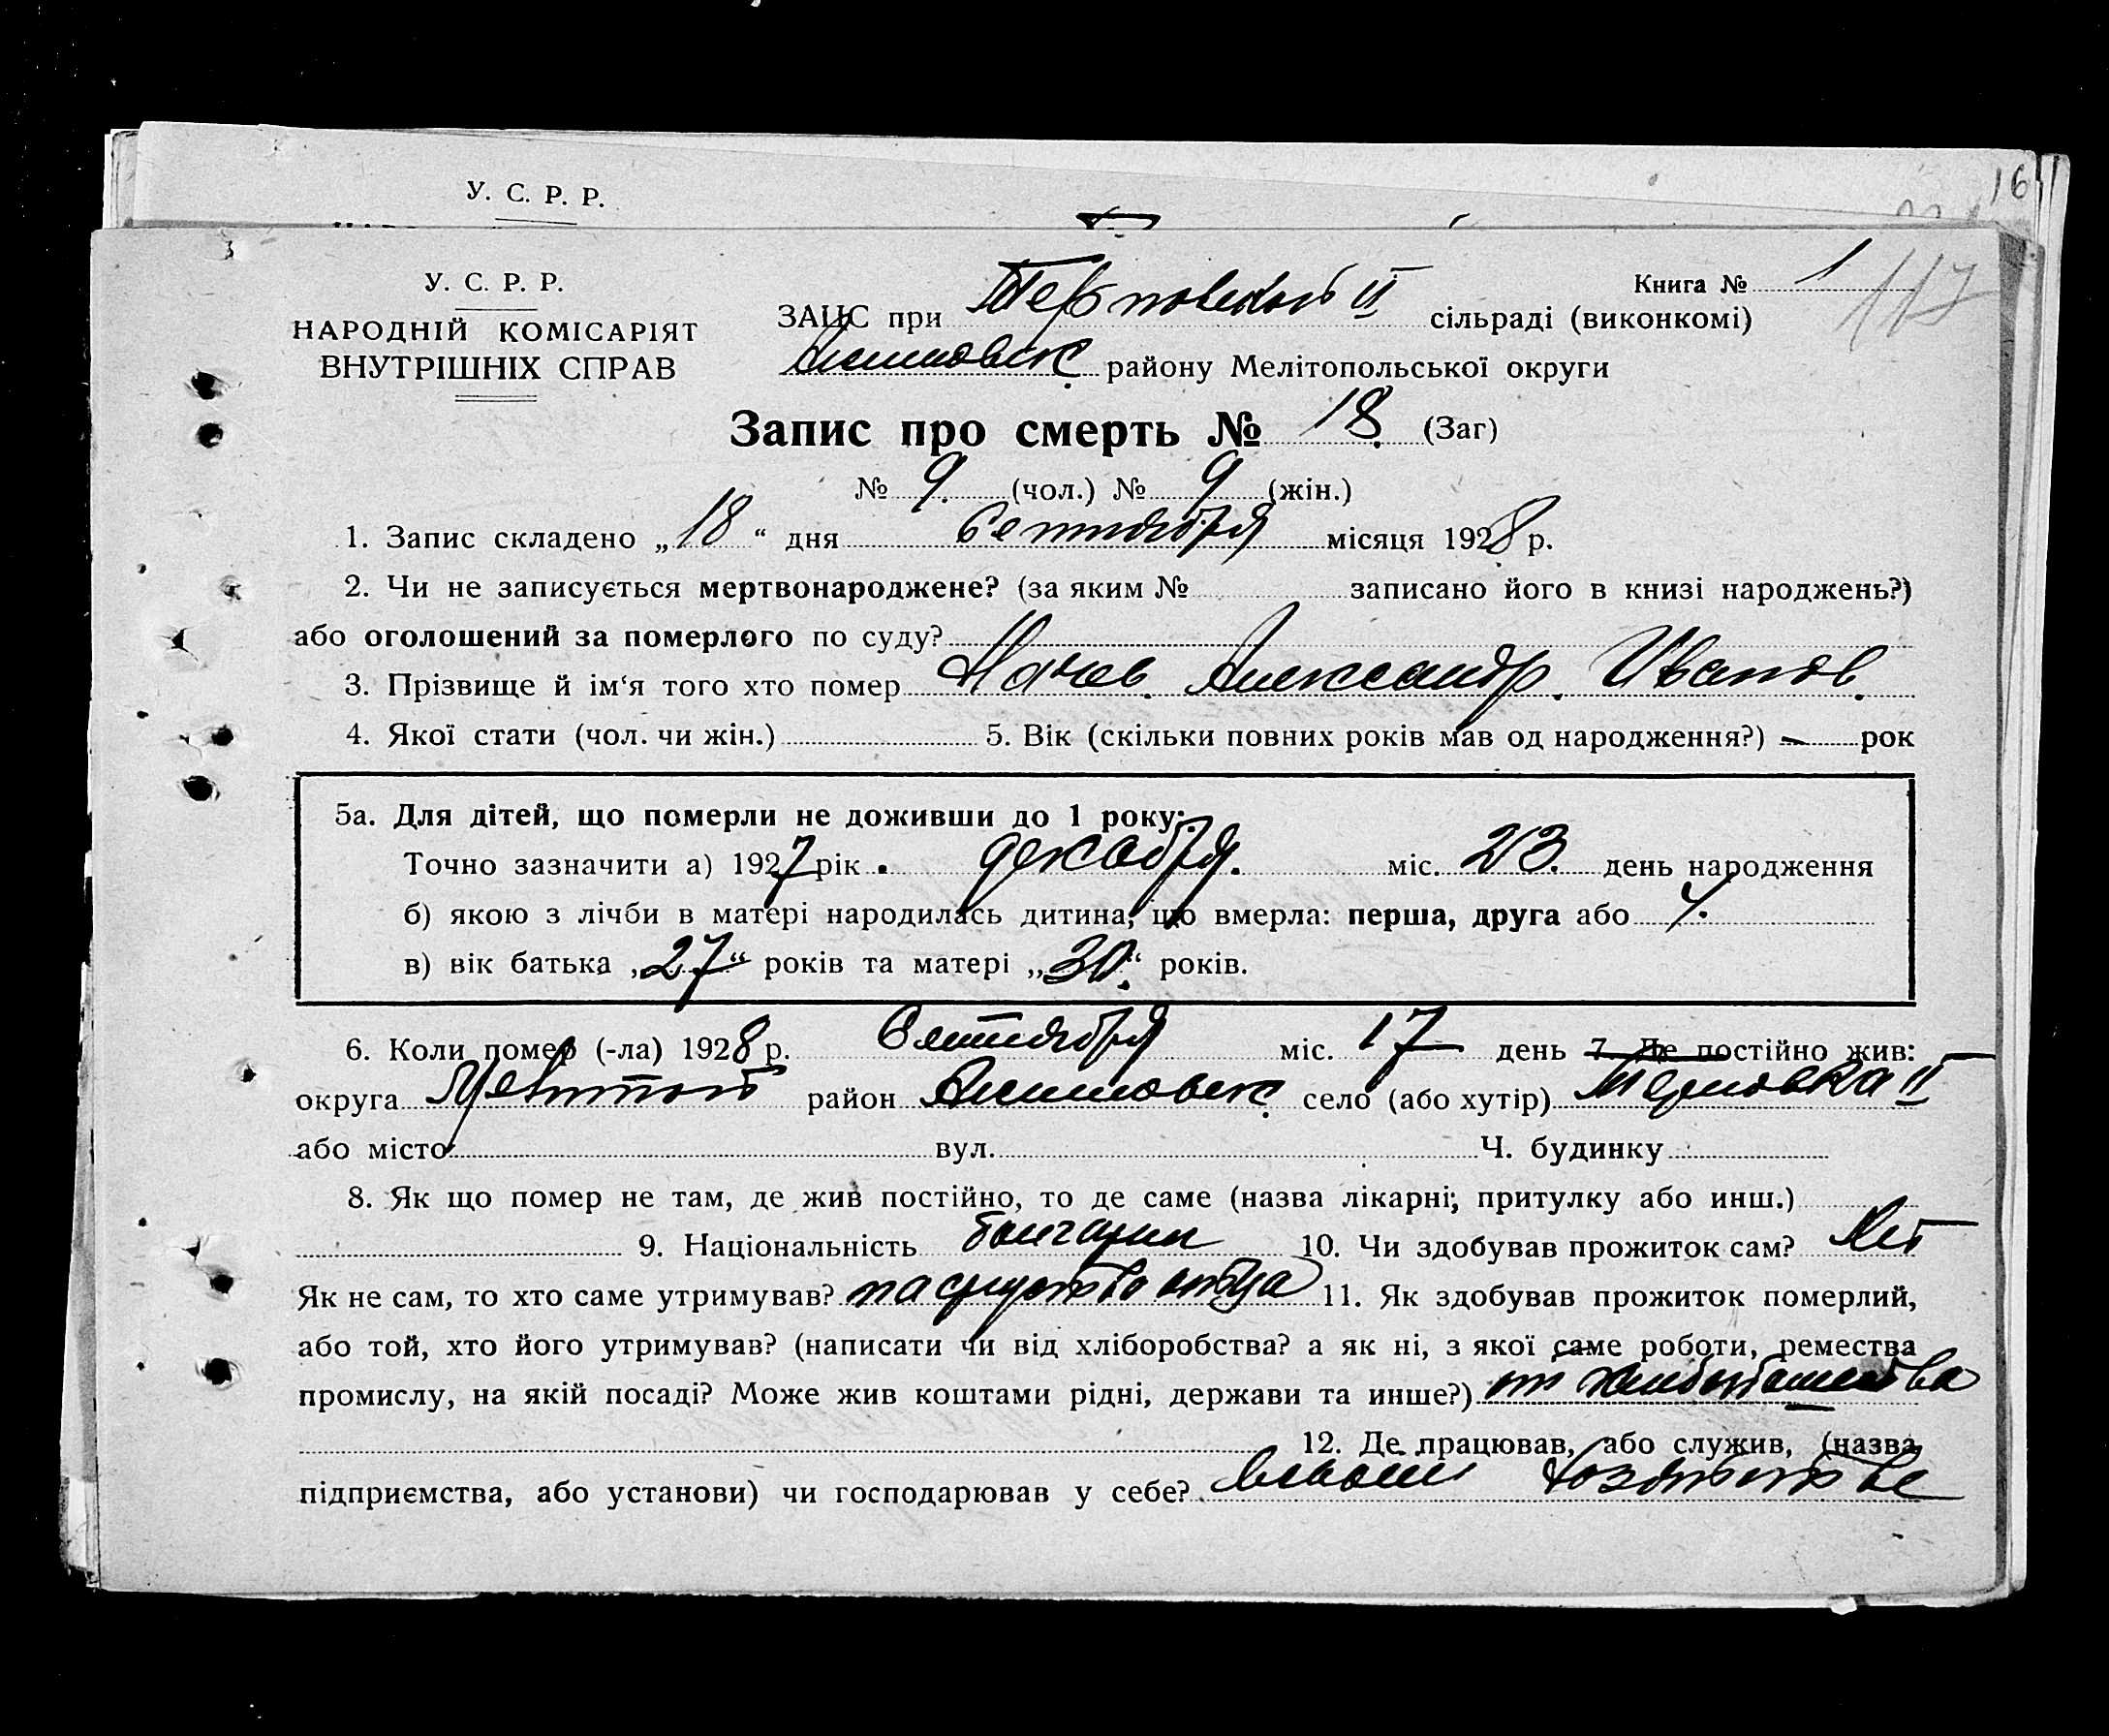 16
У. С. Р. Р.
У. С. Р. Р.
НАРОДНІЙ КОМІСАРІЯТ
ВНУТРІШНІХ СПРАВ
Книга № 1
117
ЗАЦС при II сільраді (виконкомі)
Акимовск. району Мелітопольської округи
Запис про смерть № 18. (Заг)
№ 9. (чол.) № 9 (жін.)
1. Запис складено „18“ дня Сентября місяця 1928 р.
2. Чи не записується мертвонароджене? (за яким № записано його в книзі народжень?)
або оголошений за померлого по суду?
3. Прізвище й ім‘я того хто помер Александр. Иванов.
4. Якої стати (чол. чи жін.) 5. Вік (скільки повних років мав од народження?) – рок
5а. Для дітей, що померли не доживши до 1 року:
Точно зазначити а) 1927 рік декабря. міс. 23. день народження
б) якою з лічби в матері народилась дитина, що вмерла: перша, друга або
в) вік батька „27“ років та матері „30.“ років.
6. Коли помер (-ла) 1928 р. Сентября міс. 17 день 7. Де постійно жив:
округа Мелитоп район Акимовск. село (або хутір) Терновка II
або місто вул. Ч. будинку
8. Як що помер не там, де жив постійно, то де саме (назва лікарні; притулку або инш.)
9. Національність болгарин 10. Чи здобував прожиток сам? Нет
Як не сам, то хто саме утримував? на средства отца 11. Як здобував прожиток померлий,
або той, хто його утримував? (написати чи від хліборобства? а як ні, з якої саме роботи, ремества
промислу, на якій посаді? Може жив коштами рідні, держави та инше?) от хлебопашества
12. Де працював, або служив, (назва
підприємства, або установи) чи господарював у себе? в своем хозяйстве